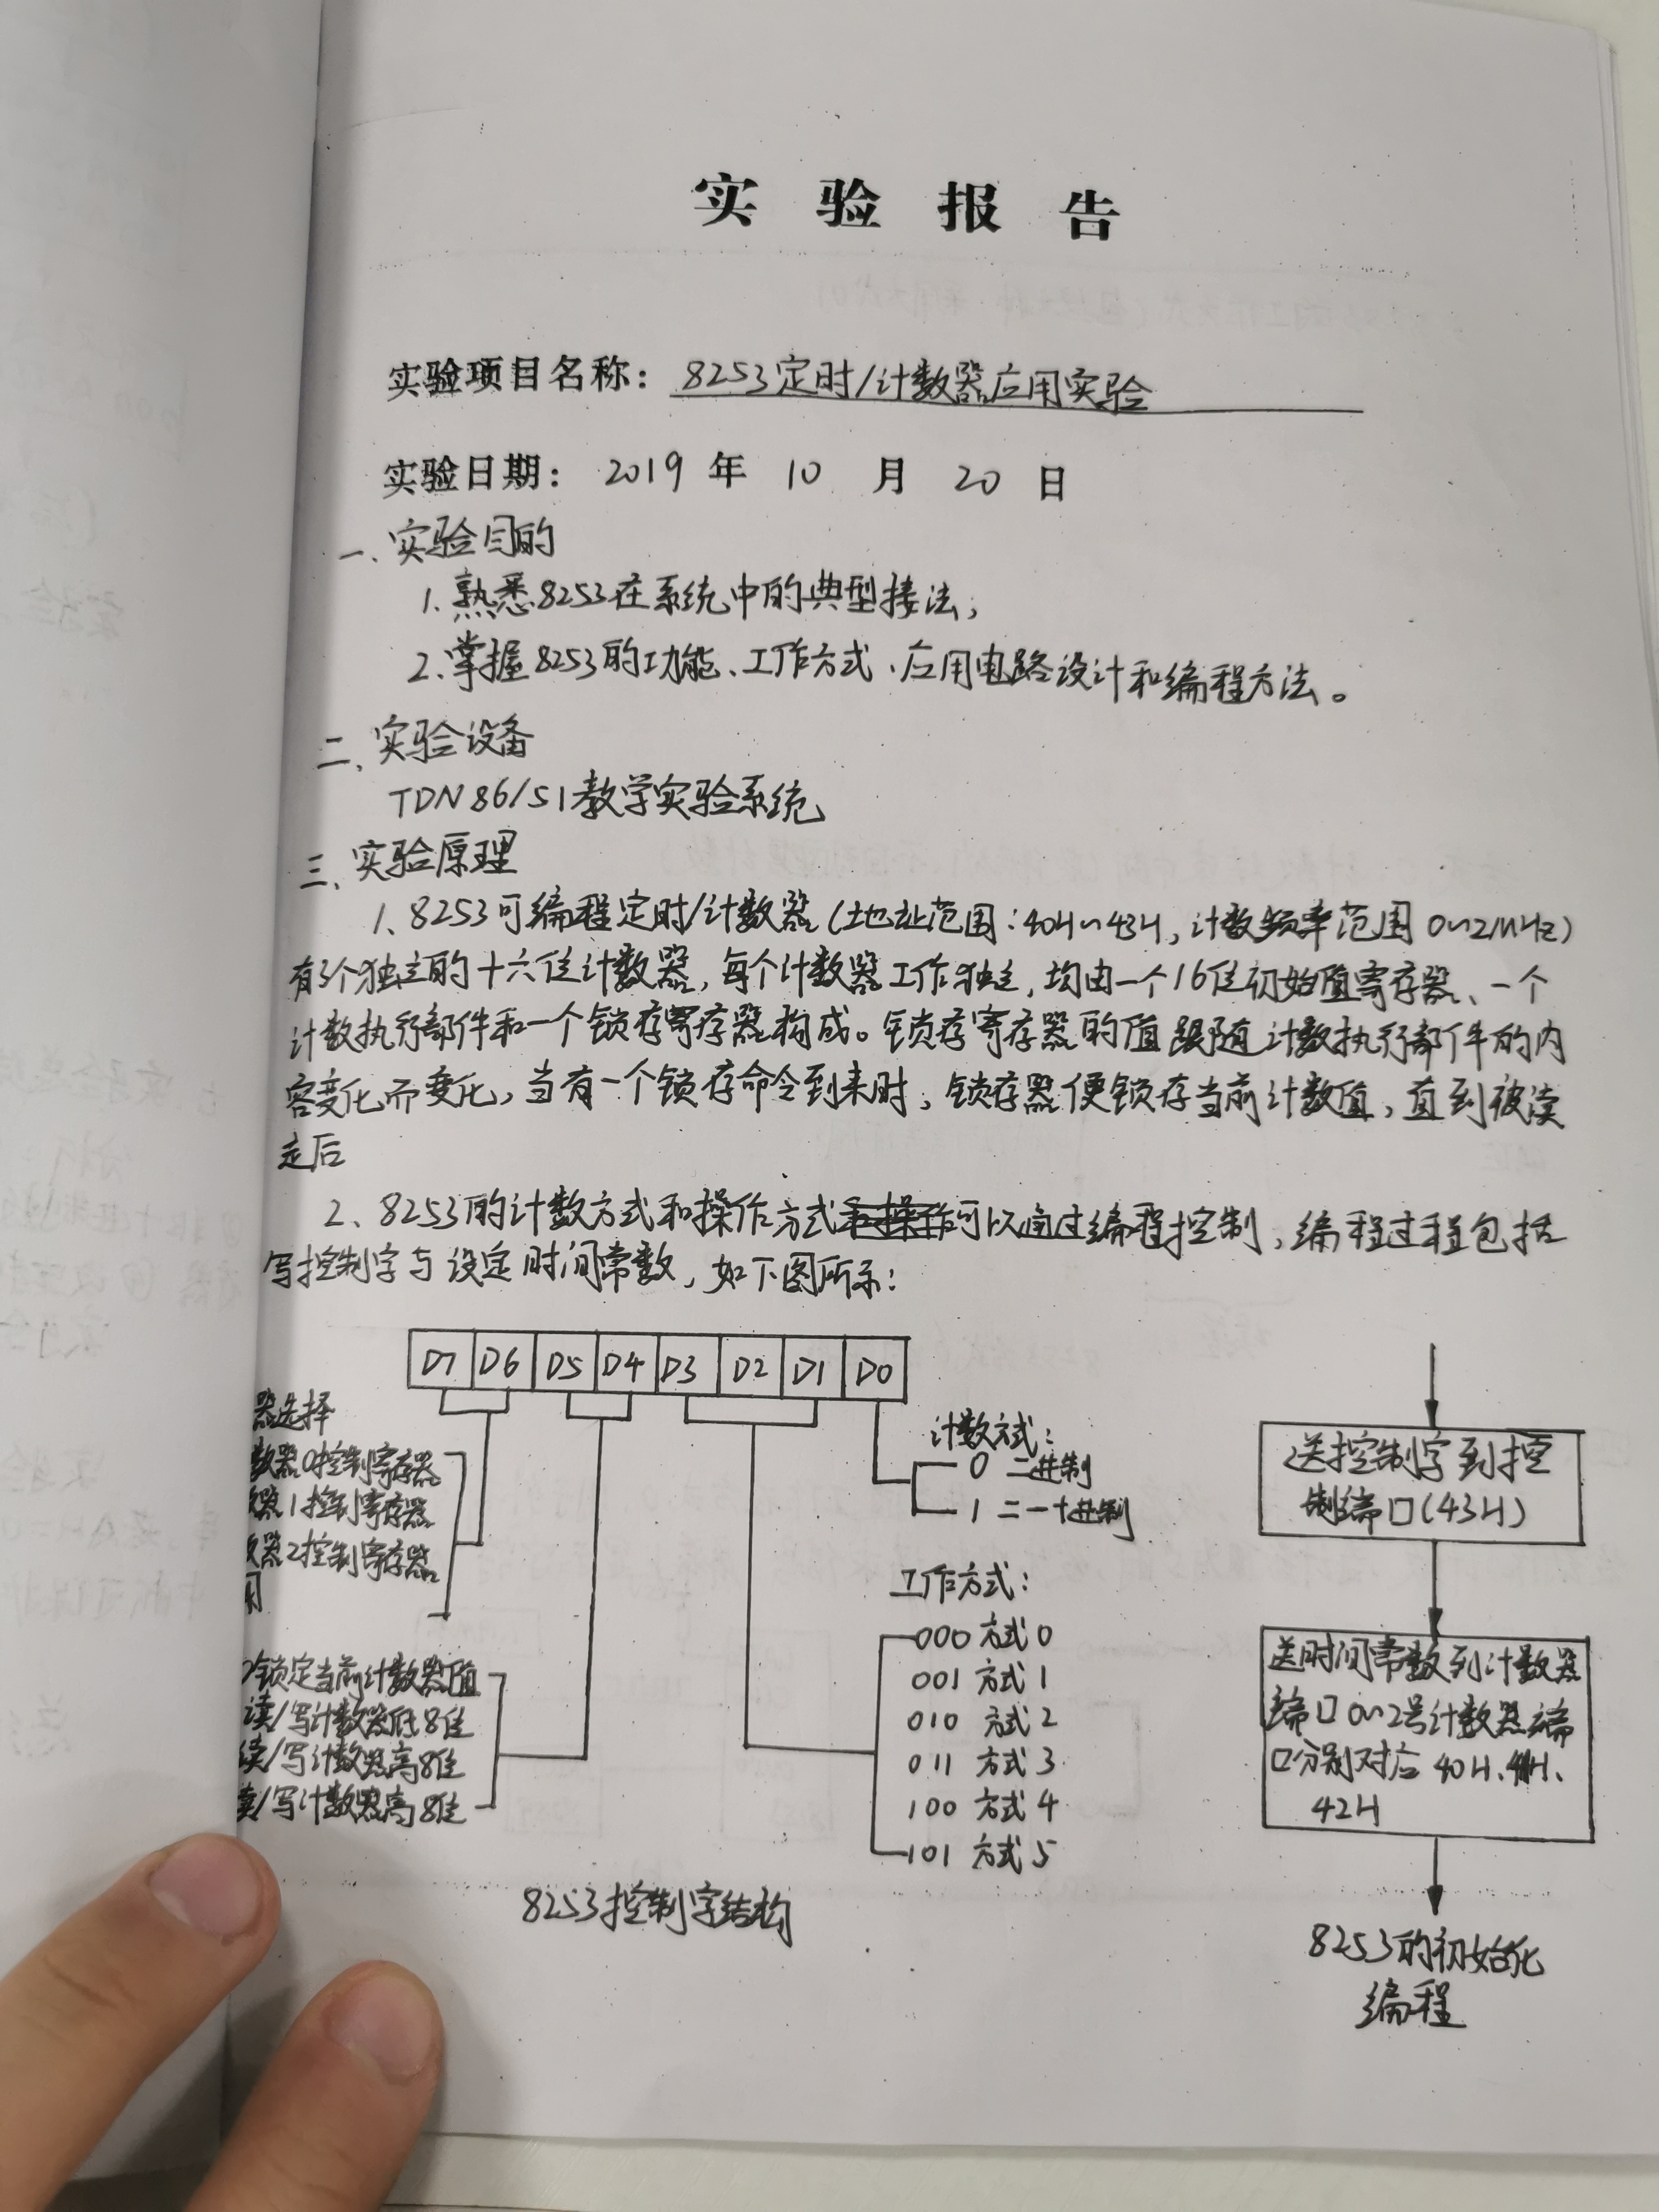 实验报告
实验项目名称：8253定时/计数器应用实验
实验日期：2019年10月20日
一、实验目的
1.熟悉8253在系统中的典型接法；
2.掌握8253的功能、工作方式、应用电路设计和编程方法。
二、实验设备
TDN86/51教学实验系统
三、实验原理
1、8253可编程定时/计数器（地址范围：40H~43H，计数频率范围0~2MHz）
有3个独立的十六位计数器，每个计数器工作独立，均由一个16位初始值寄存器、一个
计数执行部件和一个锁存寄存器构成。锁存寄存器的值跟随计数执行部件的内
容变化而变化，当有一个锁存命令到来时，锁存器便锁存当前计数值，直到被读
走后
2、8253的计数方式和操作方式可以通过编程控制，编程过程包括
写控制字与设定时间常数，如下图所示：
D7 D6 D5 D4 D3 D2 D1 D0
器选择
数器0控制寄存器
数器1控制寄存器
数器2控制寄存器
用
锁定当前计数器值
读/写计数器低8位
读/写计数器高8位
读/写计数器高8位
计数方式：
0 二进制
1 二一十进制
工作方式：
000 方式0
001 方式1
010 方式2
011 方式3
100 方式4
101 方式5
8253控制字结构
送控制字到控
制端口(43H)
送时间常数到计数器
端口0~2号计数器端
口分别对应40H、41H、
42H
8253的初始化
编程